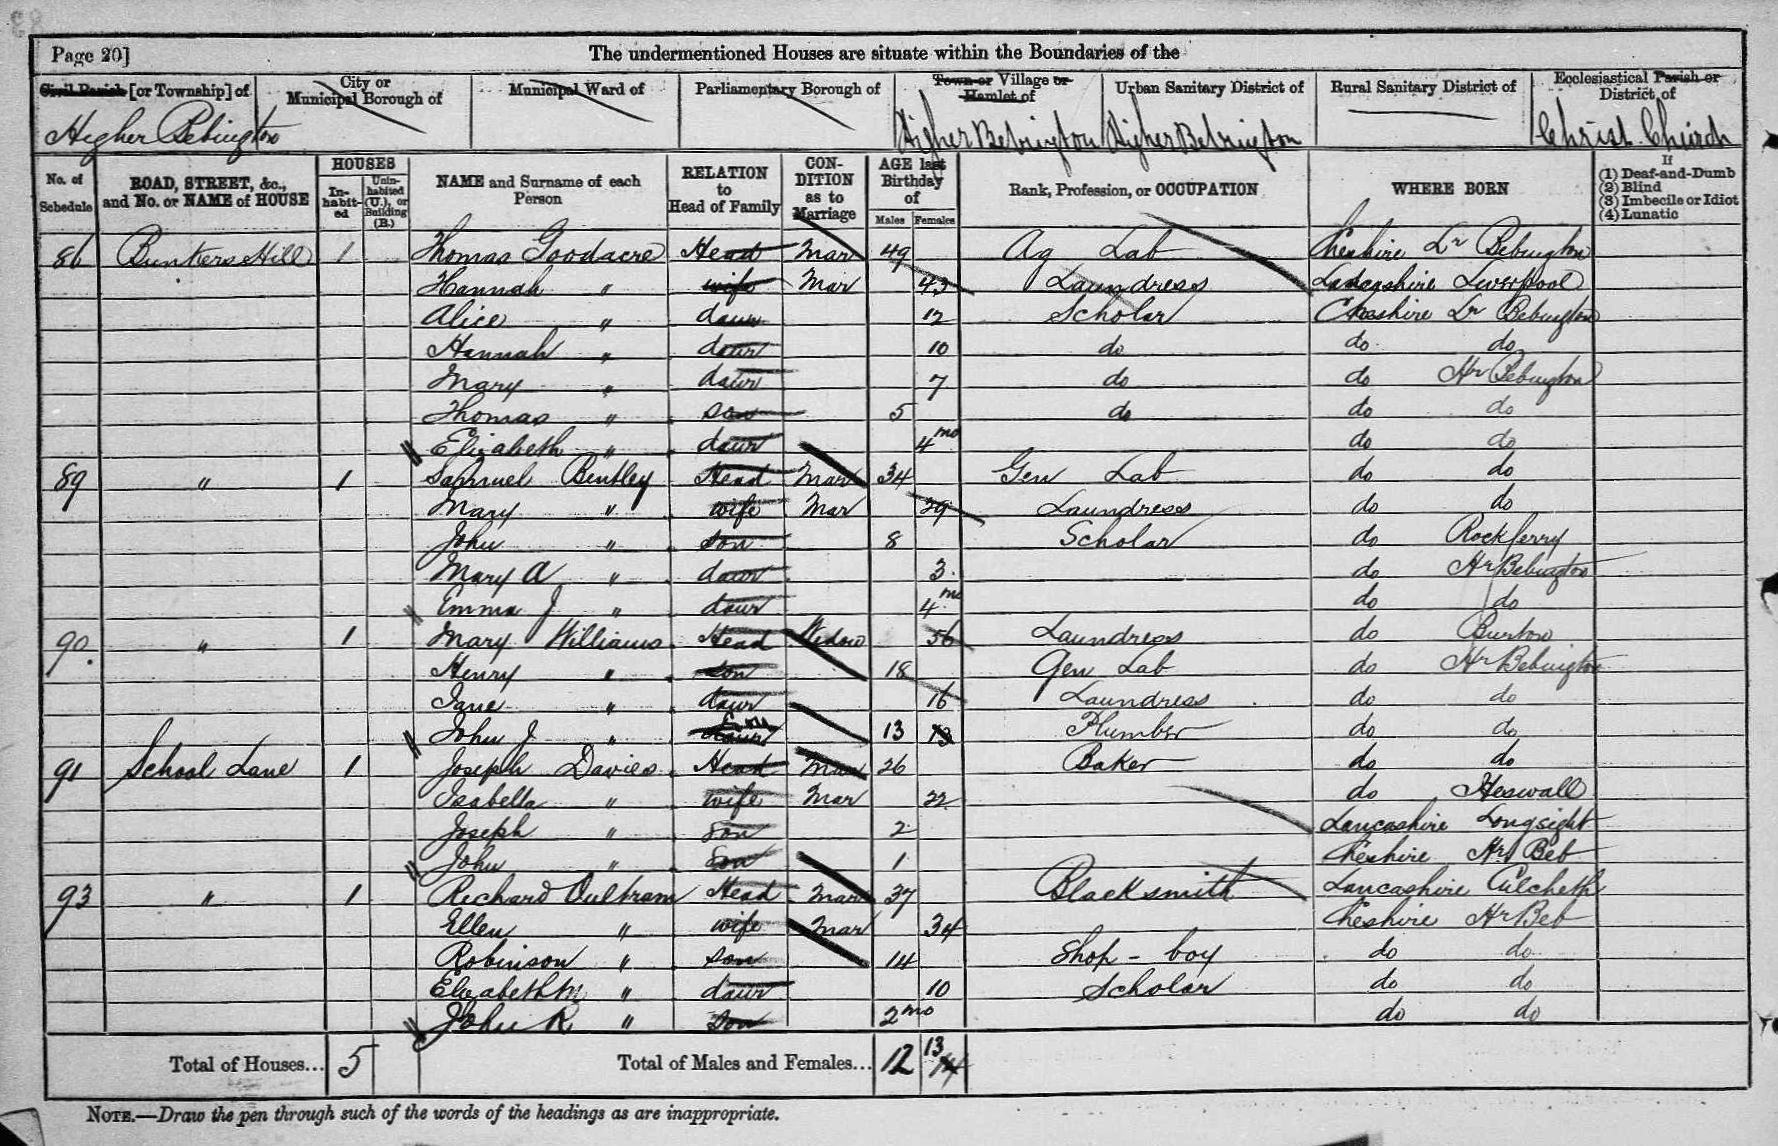 Page 20]
The undermentioned Houses are situate within the Boundaries of the
Civil Parish [or Township] of
City or Municipal Borough of
Municipal Ward of
Parliamentary Borough of
Town or Village or Hamlet of
Urban Sanitary District of
Rural Sanitary District of
Ecclesiastical Parish or District of
Higher Bebington Higher Bebington Higher Bebington Christ Church
No. of Schedule
ROAD, STREET, &c., and No. or NAME of HOUSE
HOUSES
In-habit-ed
Unin-habited (U.), or Building (B.)
NAME and Surname of each Person
RELATION to Head of Family
CON-DITION as to Marriage
AGE last Birthday of
Males Females
Rank, Profession, or OCCUPATION
WHERE BORN
If
(1) Deaf-and-Dumb
(2) Blind
(3) Imbecile or Idiot
(4) Lunatic
86 Bunkers Hill 1 Thomas Goodacre Head Mar 49 Ag Lab Cheshire Lr Bebington
Hannah " wife Mar 43 Laundress Lancashire Liverpool
Alice " daur 12 Scholar Cheshire Lr Bebington
Hannah " daur 10 do do do
Mary " daur 7 do do Hr Bebington
Thomas " son 5 do do do
Elizabeth " daur 4mo do do
89 " 1 Samuel Bentley Head Mar 34 Gen Lab do do
Mary " wife Mar 29 Laundress do do
John " son 8 Scholar do Rockferry
Mary A " daur 3 do Hr Bebington
Emma J " daur 4mo do do
90 " 1 Mary Williams Head Widow 56 Laundress do Burton
Henry " son 18 Gen Lab do Hr Bebington
Jane " daur 16 Laundress do do
John J " daur Son 13 13 Plumber do do
91 School Lane 1 Joseph Davies Head Mar 26 Baker do do
Isabella " wife Mar 22 do Heswall
Joseph " son 2 Lancashire Longsight
John " son 1 Cheshire Hr Beb
93 " 1 Richard Oultram Head Mar 37 Blacksmith Lancashire Culcheth
Ellen " wife Mar 34 Cheshire Hr Beb
Robinson " son 14 Shop-boy do do
Elizabeth M " daur 10 Scholar do do
John R " son 2mo do do
Total of Houses... 5 Total of Males and Females... 12 13 14
NOTE.—Draw the pen through such of the words of the headings as are inappropriate.